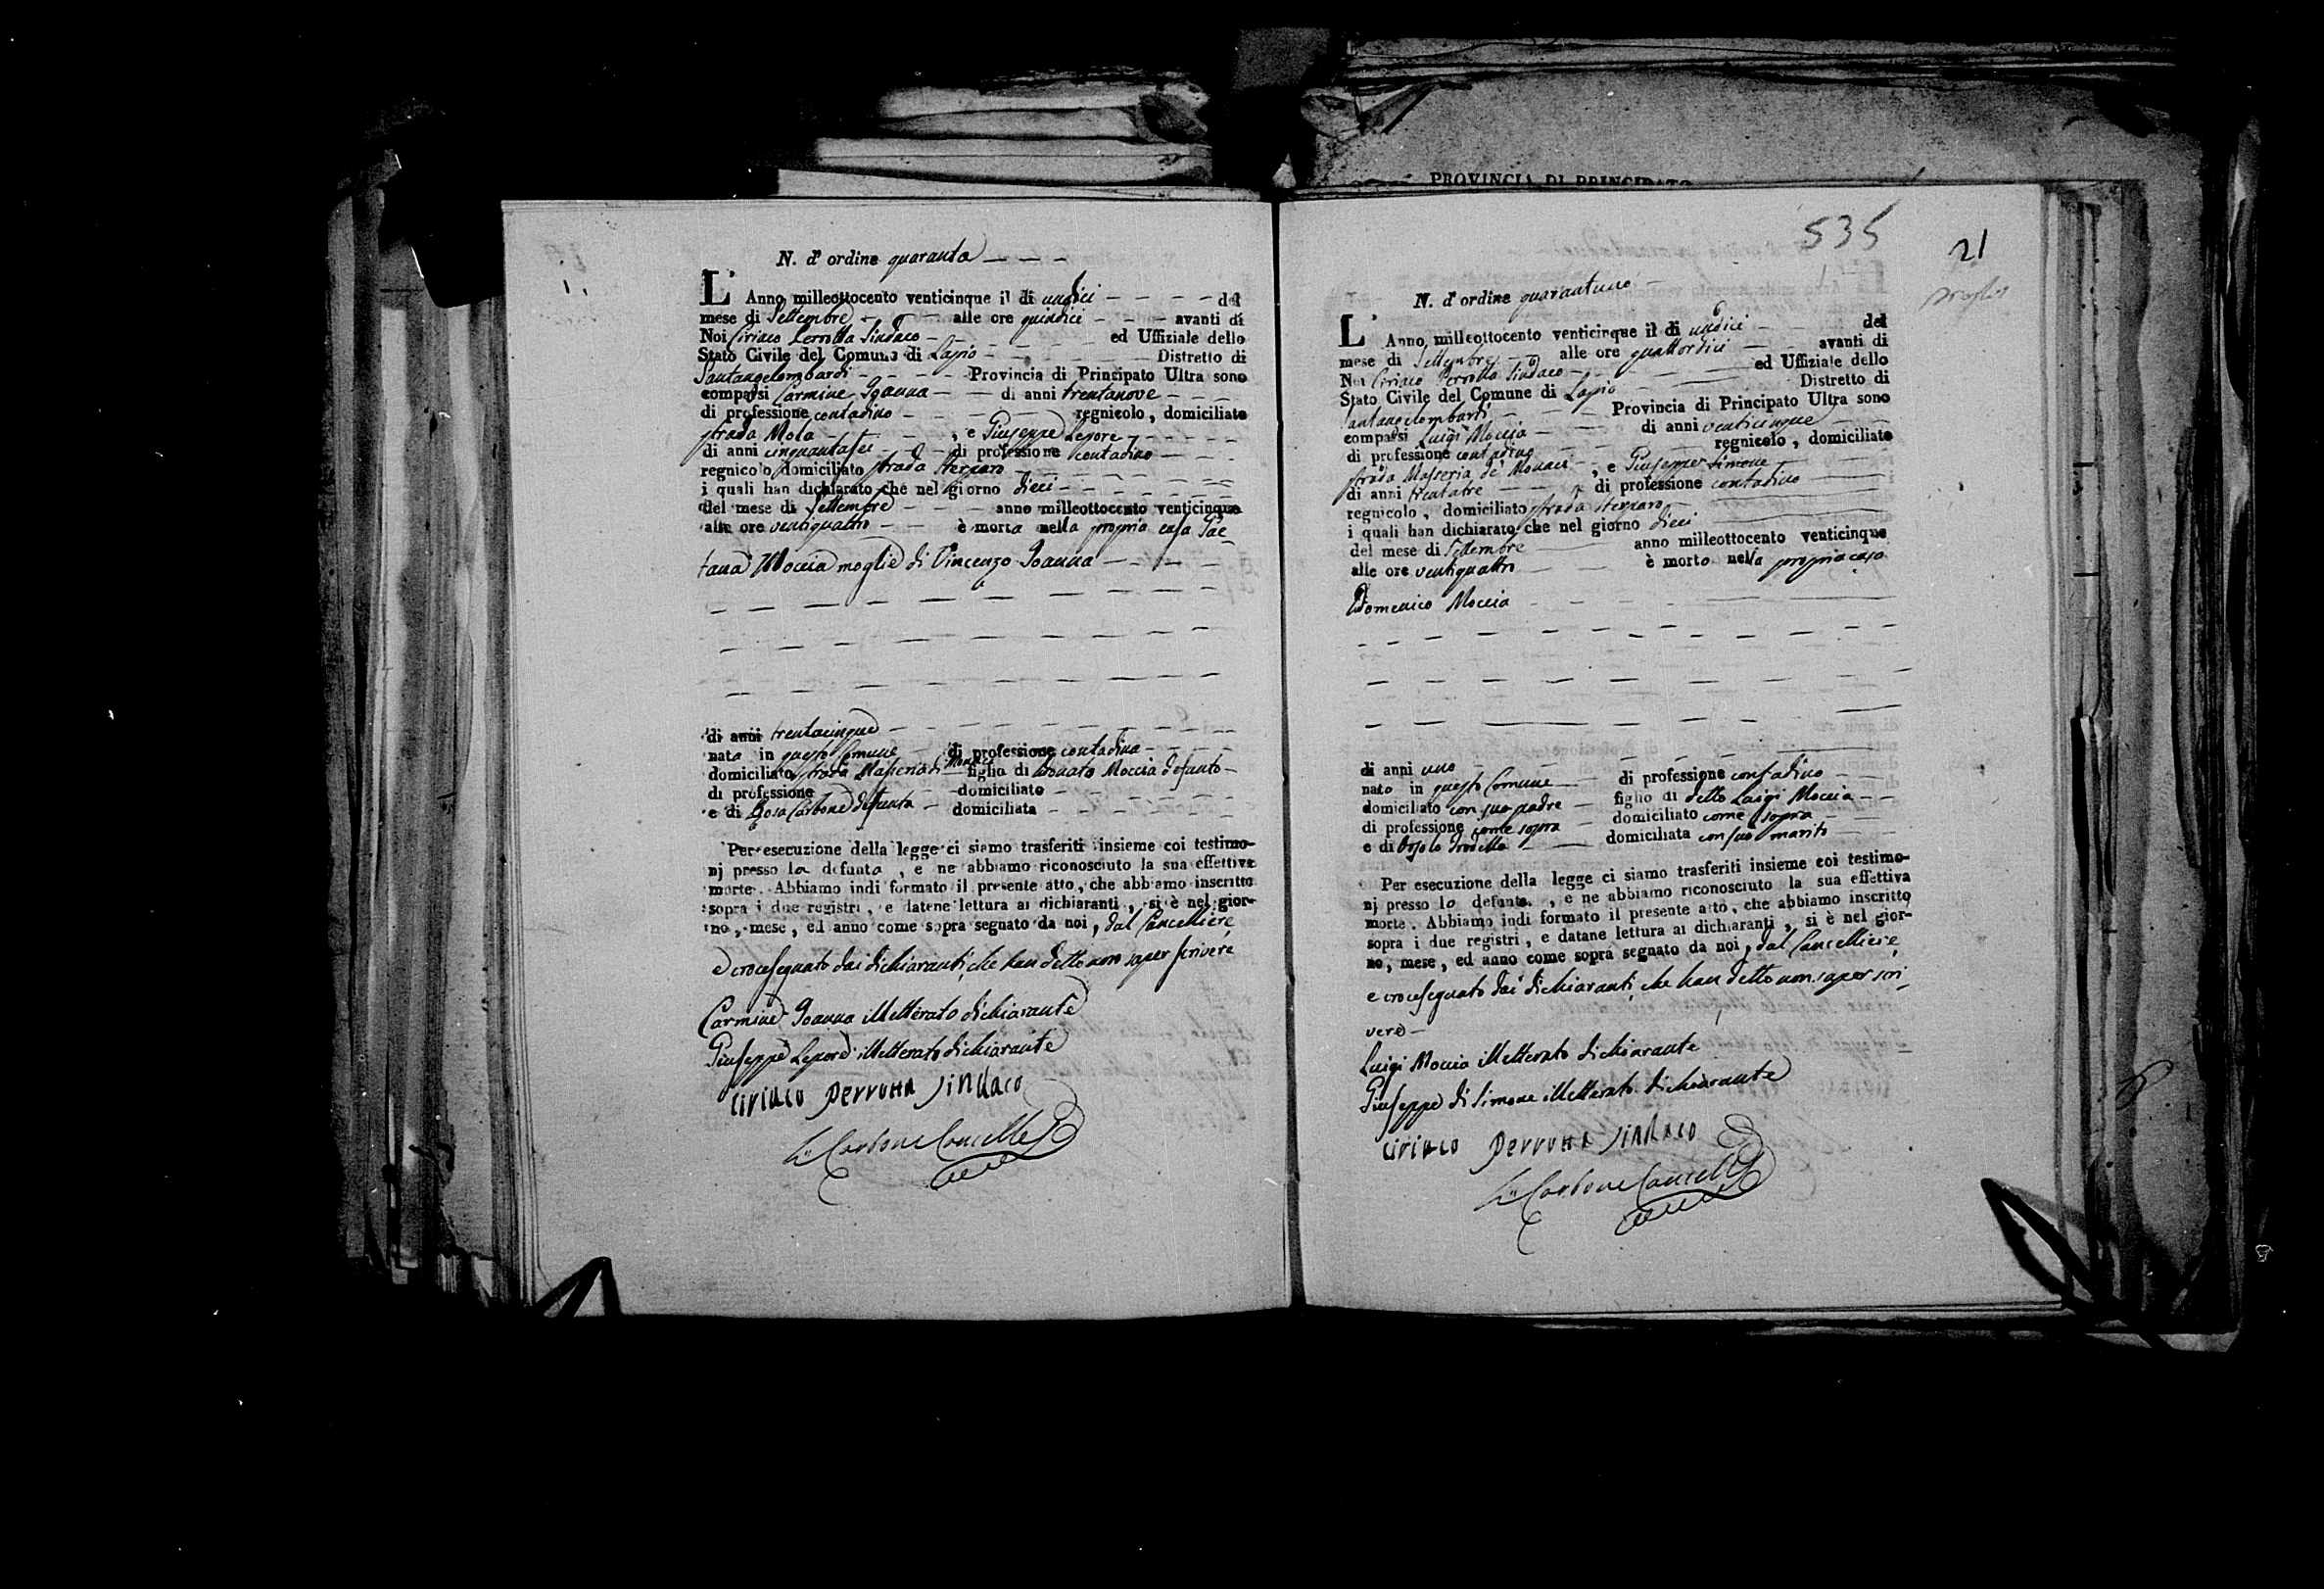 N. d'ordine quaranta
L' Anno milleottocento venticinque il di undici del
mese di Settembre alle ore quindici avanti di
Noi Ciriaco Perrotta Sindaco ed Uffiziale dello
Stato Civile del Comune di Lapio Distretto di
Santangelombardi Provincia di Principato Ultra sono
comparsi Carmine Joanna di anni trentanove
di professione contadino regnicolo, domiciliato
strada Mola, e Giuseppe Lepore
di anni cinquantasei di professione contadino
regnicolo domiciliato strada Sterparo
i quali han dichiarato che nel giorno dieci
del mese di Settembre anno milleottocento venticinque
alle ore ventiquattro è morta nella propria casa Gae-
tana Moccia moglie di Vincenzo Joanna
di anni trentacinque
nata in questo Comune di professione contadina
domiciliata strada Masseria di Monaci figlia di Donato Moccia defunto
di professione domiciliato
e di Rosa Carbone defunta domiciliata
Per esecuzione della legge ci siamo trasferiti insieme coi testimo-
nj presso la defunta, e ne abbiamo riconosciuto la sua effettiva
morte. Abbiamo indi formato il presente atto, che abbiamo inscritto
sopra i due registri, e datene lettura ai dichiaranti, si è nel gior-
no, mese, ed anno come sopra segnato da noi, dal Cancelliere
e crocesegnato dai dichiaranti, che han detto non saper scrivere
Carmine Joanna illetterato dichiarante
Giuseppe Lepore illetterato dichiarante
Ciriaco Perrotta Sindaco
Carbone Cancell
PROVINCIA DI PRINCIPATO
535
21
N. d'ordine quarantuno
L' Anno milleottocento venticinque il di undici del
mese di Settembre alle ore quattordici avanti di
Noi Ciriaco Perrotta Sindaco ed Uffiziale dello
Stato Civile del Comune di Lapio Distretto di
Santangelombardi Provincia di Principato Ultra sono
comparsi Luigi Moccia di anni venticinque
di professione contadino regnicolo, domiciliato
strada Masseria de' Monaci, e Giuseppe Simone
di anni trentatre di professione contadino
regnicolo, domiciliato strada Sterparo
i quali han dichiarato che nel giorno dieci
del mese di Settembre anno milleottocento venticinque
alle ore ventiquattro è morto nella propria casa
Domenico Moccia
di anni uno
nato in questo Comune di professione contadino
domiciliato con suo padre figlio di detto Luigi Moccia
di professione come sopra domiciliato come sopra
e di domiciliata con suo marito
Per esecuzione della legge ci siamo trasferiti insieme coi testimo-
nj presso lo defunto, e ne abbiamo riconosciuto la sua effettiva
morte. Abbiamo indi formato il presente atto, che abbiamo inscritto
sopra i due registri, e datane lettura ai dichiaranti, si è nel gior-
no, mese, ed anno come sopra segnato da noi, dal Cancelliere,
e crocesegnato dai dichiaranti, che han detto non saper scri-
vere
Luigi Moccia illetterato dichiarante
Giuseppe di Simone illetterato dichiarante
Ciriaco Perrotta Sindaco
Carbone Cancell